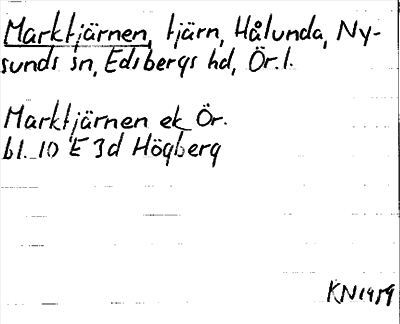 Marktjärnen, tjärn, Hålunda, Ny-
sunds sn, Edsbergs hd, Ör.l.
Marktjärnen ek Ör.
bl. 10 E 3d Högberg
KN1959